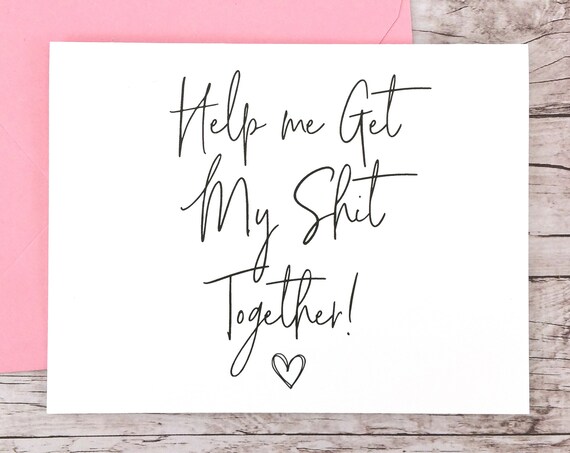 Help me Get
My Shit
Together!